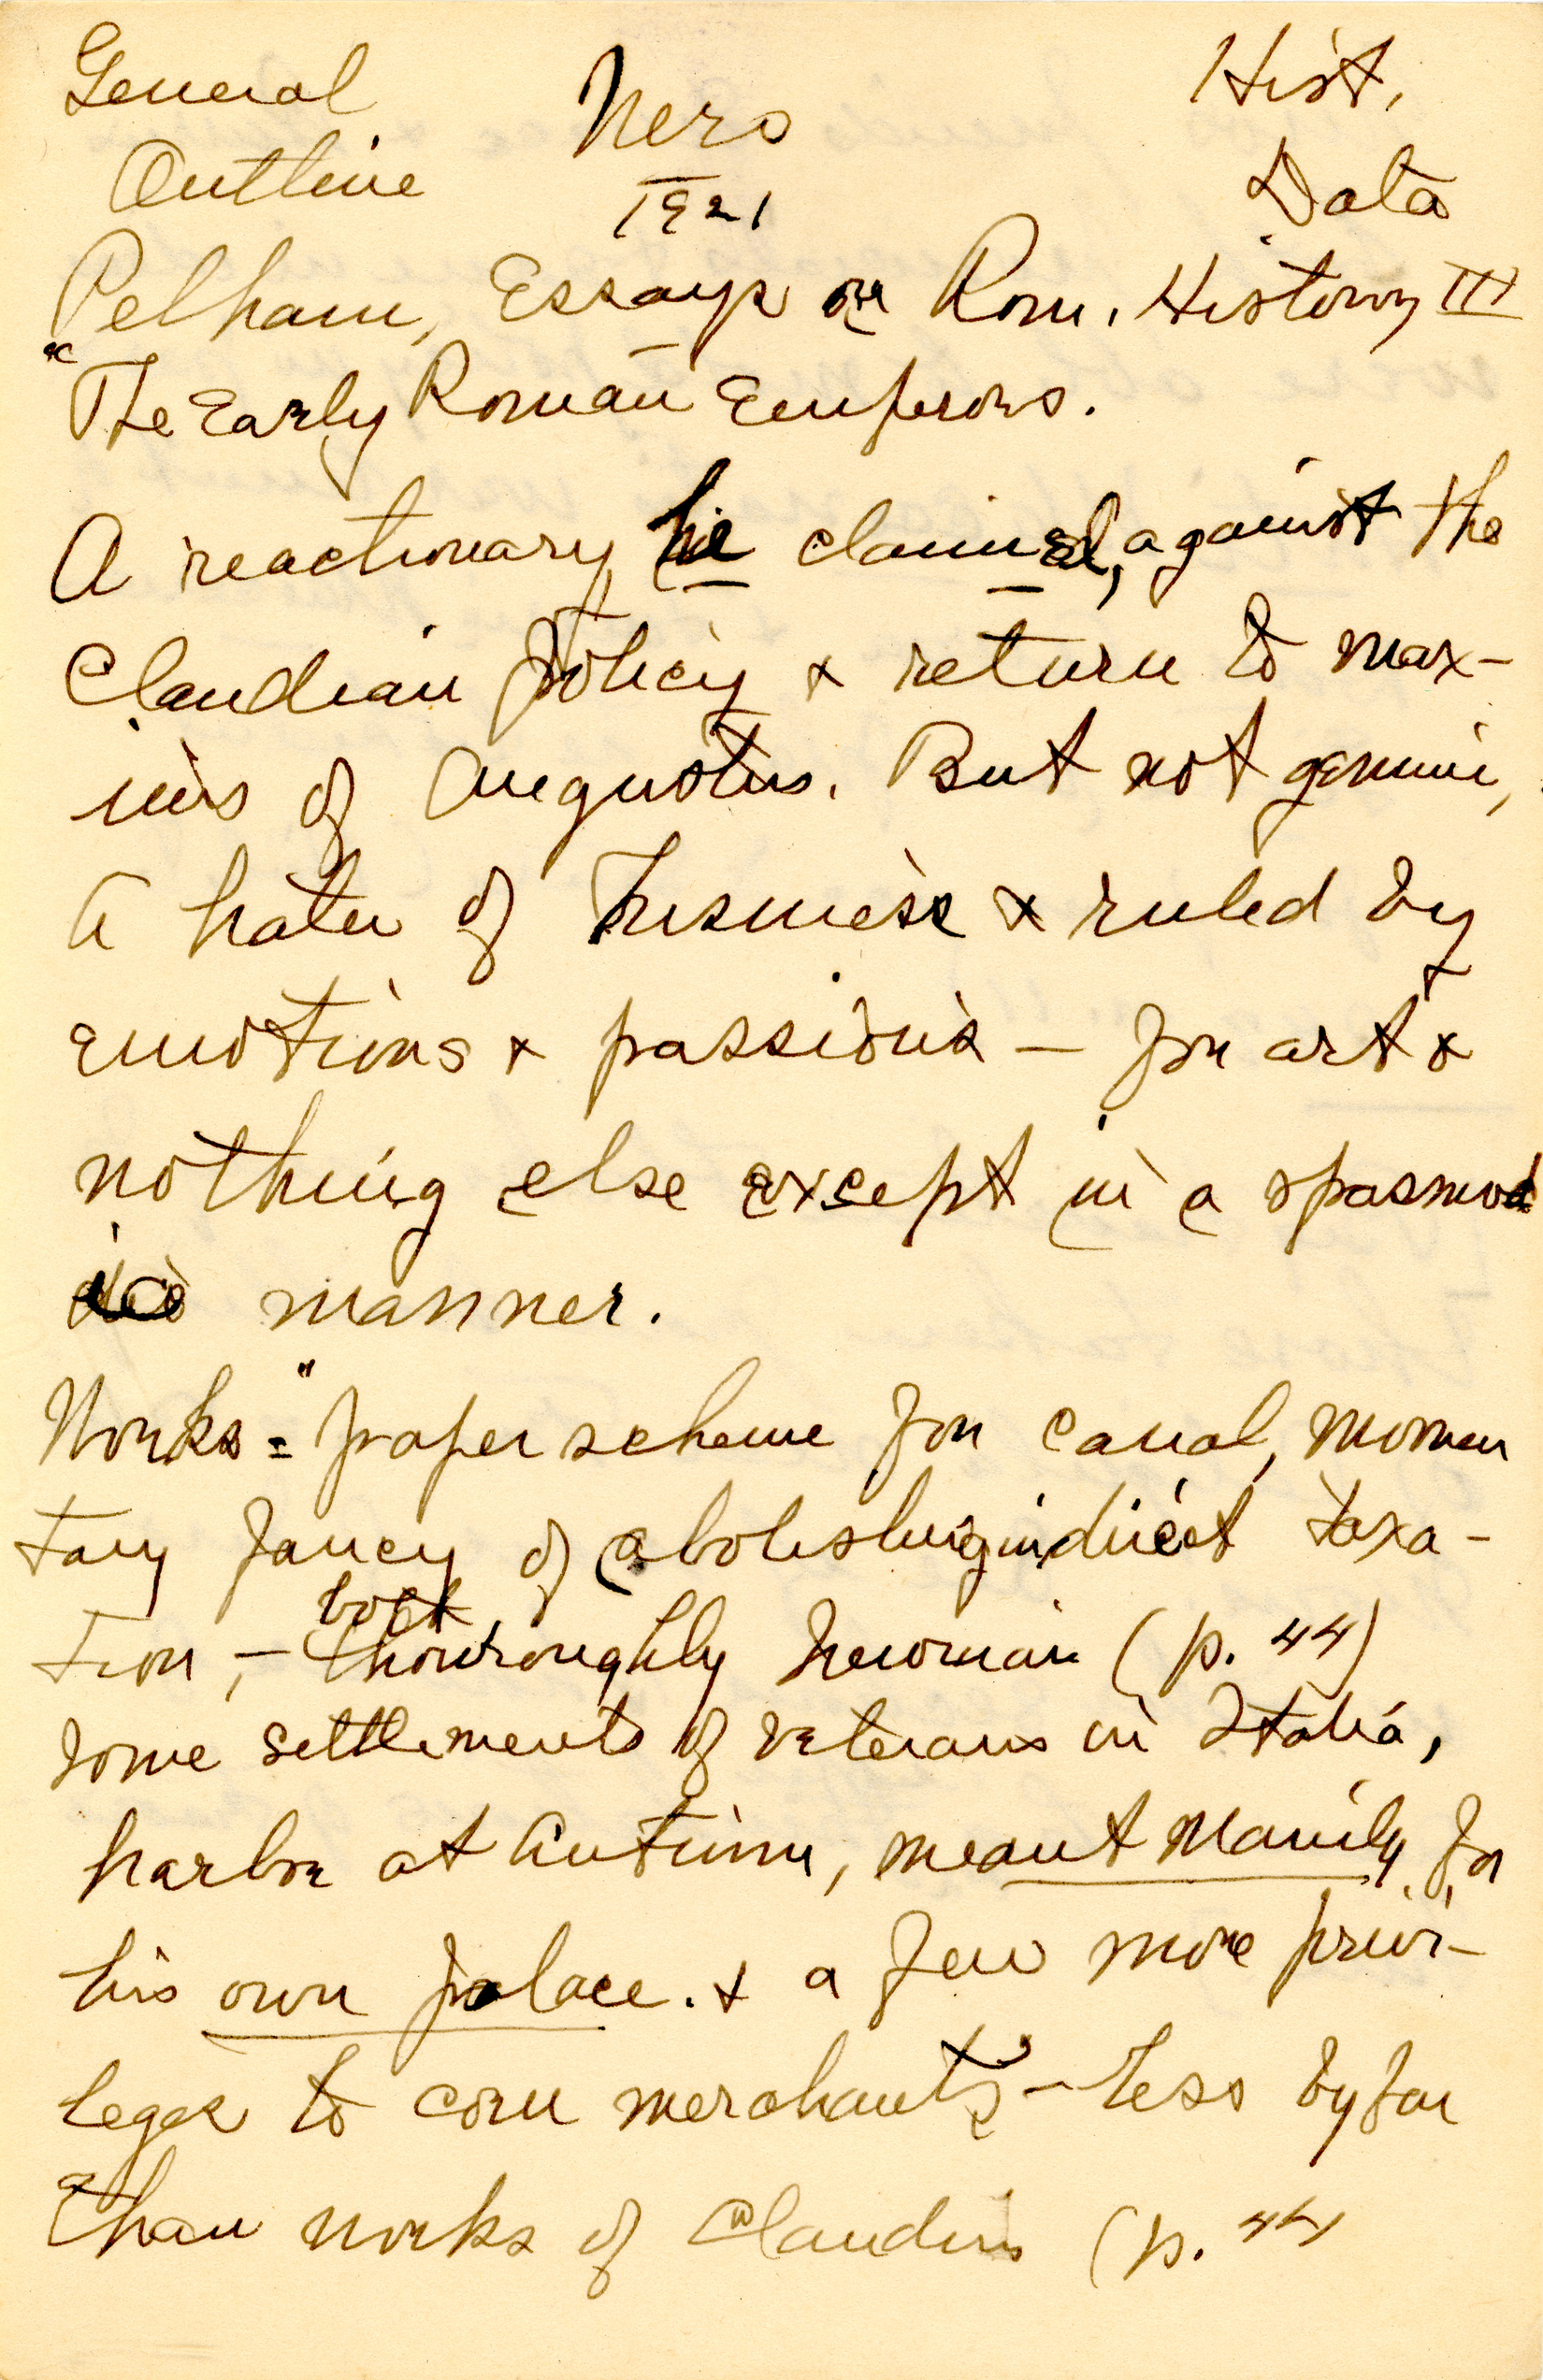 General Nero Hist.
Outline 1921 Data
Pelham, Essays on Rom. History III
"The Early Roman Emperors.
A reactionary, he claimed, against the
Claudian policy & return to max-
ims of Augustus. But not genuine,
A hater of business & ruled by
emotions & passions — for art &
nothing else except in a spasmod
ic manner.
Works = "paper scheme for canal, momen
tary fancy of abolishing indirect taxa-
tion, — both thouroughly Neronian (p. 44)
Some settlements of veterans in Italia,
harbor at Antium, meant mainly for
his own palace. & a few more privi-
leges to corn merchants — less by far
than works of Claudius (p. 44